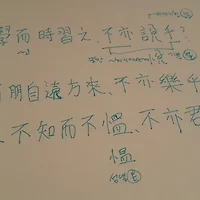 學而時習之、不亦說乎?
朋自遠方來、不亦樂乎
不知而不慍、不亦君
慍